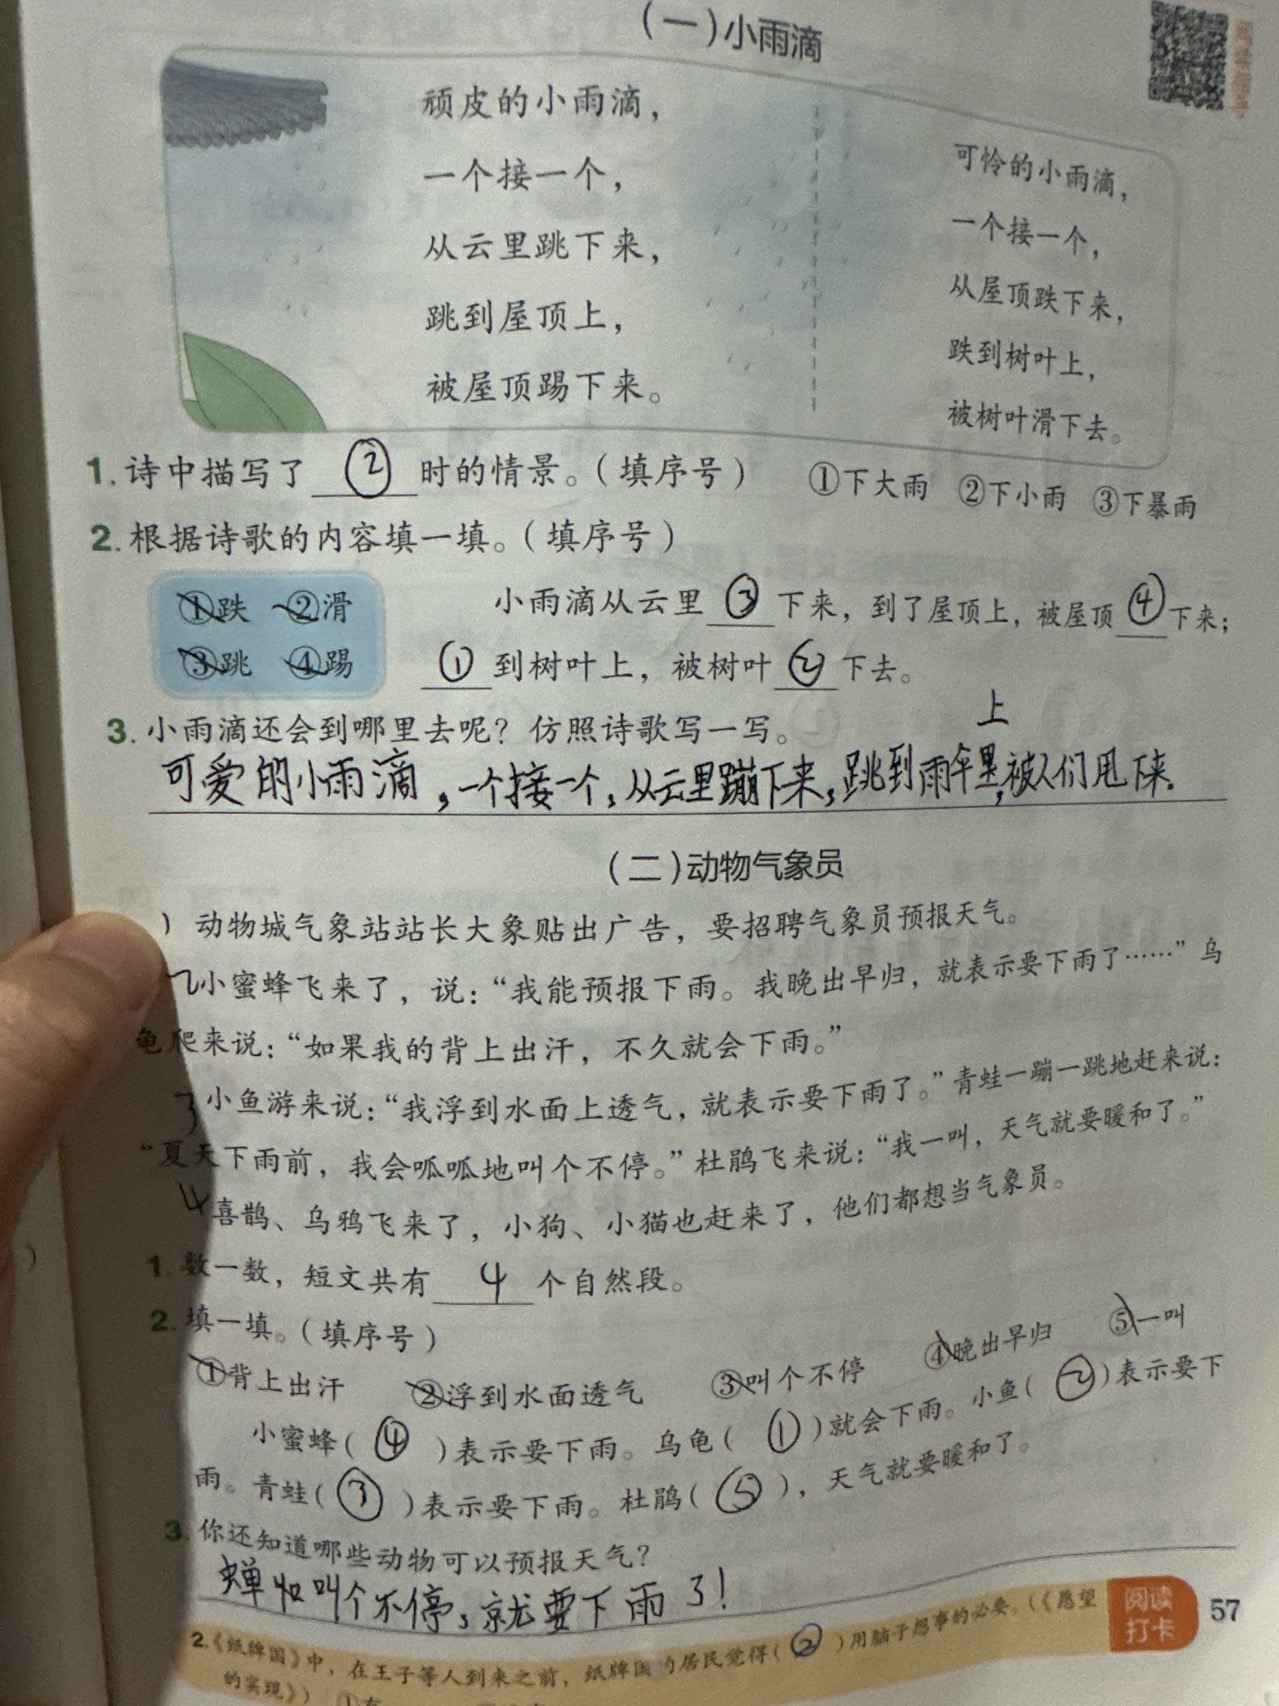 （一）小雨滴
顽皮的小雨滴，
一个接一个，
从云里跳下来，
跳到屋顶上，
被屋顶踢下来。
可怜的小雨滴，
一个接一个，
从屋顶跌下来，
跌到树叶上，
被树叶滑下去。
1. 诗中描写了 ② 时的情景。（填序号） ①下大雨 ②下小雨 ③下暴雨
2. 根据诗歌的内容填一填。（填序号）
①跌 ②滑
③跳 ④踢
小雨滴从云里 ③ 下来，到了屋顶上，被屋顶 ④ 下来；
① 到树叶上，被树叶 ② 下去。
3. 小雨滴还会到哪里去呢？仿照诗歌写一写。
上
可爱的小雨滴，一个接一个，从云里蹦下来，跳到雨伞里，被人们甩下来。
（二）动物气象员
1 动物城气象站站长大象贴出广告，要招聘气象员预报天气。
2 小蜜蜂飞来了，说：“我能预报下雨。我晚出早归，就表示要下雨了……”乌
龟爬来说：“如果我的背上出汗，不久就会下雨。”
3 小鱼游来说：“我浮到水面上透气，就表示要下雨了。”青蛙一蹦一跳地赶来说：
“夏天下雨前，我会呱呱地叫个不停。”杜鹃飞来说：“我一叫，天气就要暖和了。”
4 喜鹊、乌鸦飞来了，小狗、小猫也赶来了，他们都想当气象员。
1. 数一数，短文共有 4 个自然段。
2. 填一填。（填序号）
①背上出汗 ②浮到水面透气 ③叫个不停 ④晚出早归 ⑤一叫
小蜜蜂（ ④ ）表示要下雨。乌龟（ ① ）就会下雨。小鱼（ ② ）表示要下
雨。青蛙（ ③ ）表示要下雨。杜鹃（ ⑤ ），天气就要暖和了。
3. 你还知道哪些动物可以预报天气？
蝉 叫个不停，就要下雨了！
2.《纸牌国》中，在王子等人到来之前，纸牌国的居民觉得（ ② ）用脑子想事的必要。（《愿望
的实现》）
阅读
打卡
57